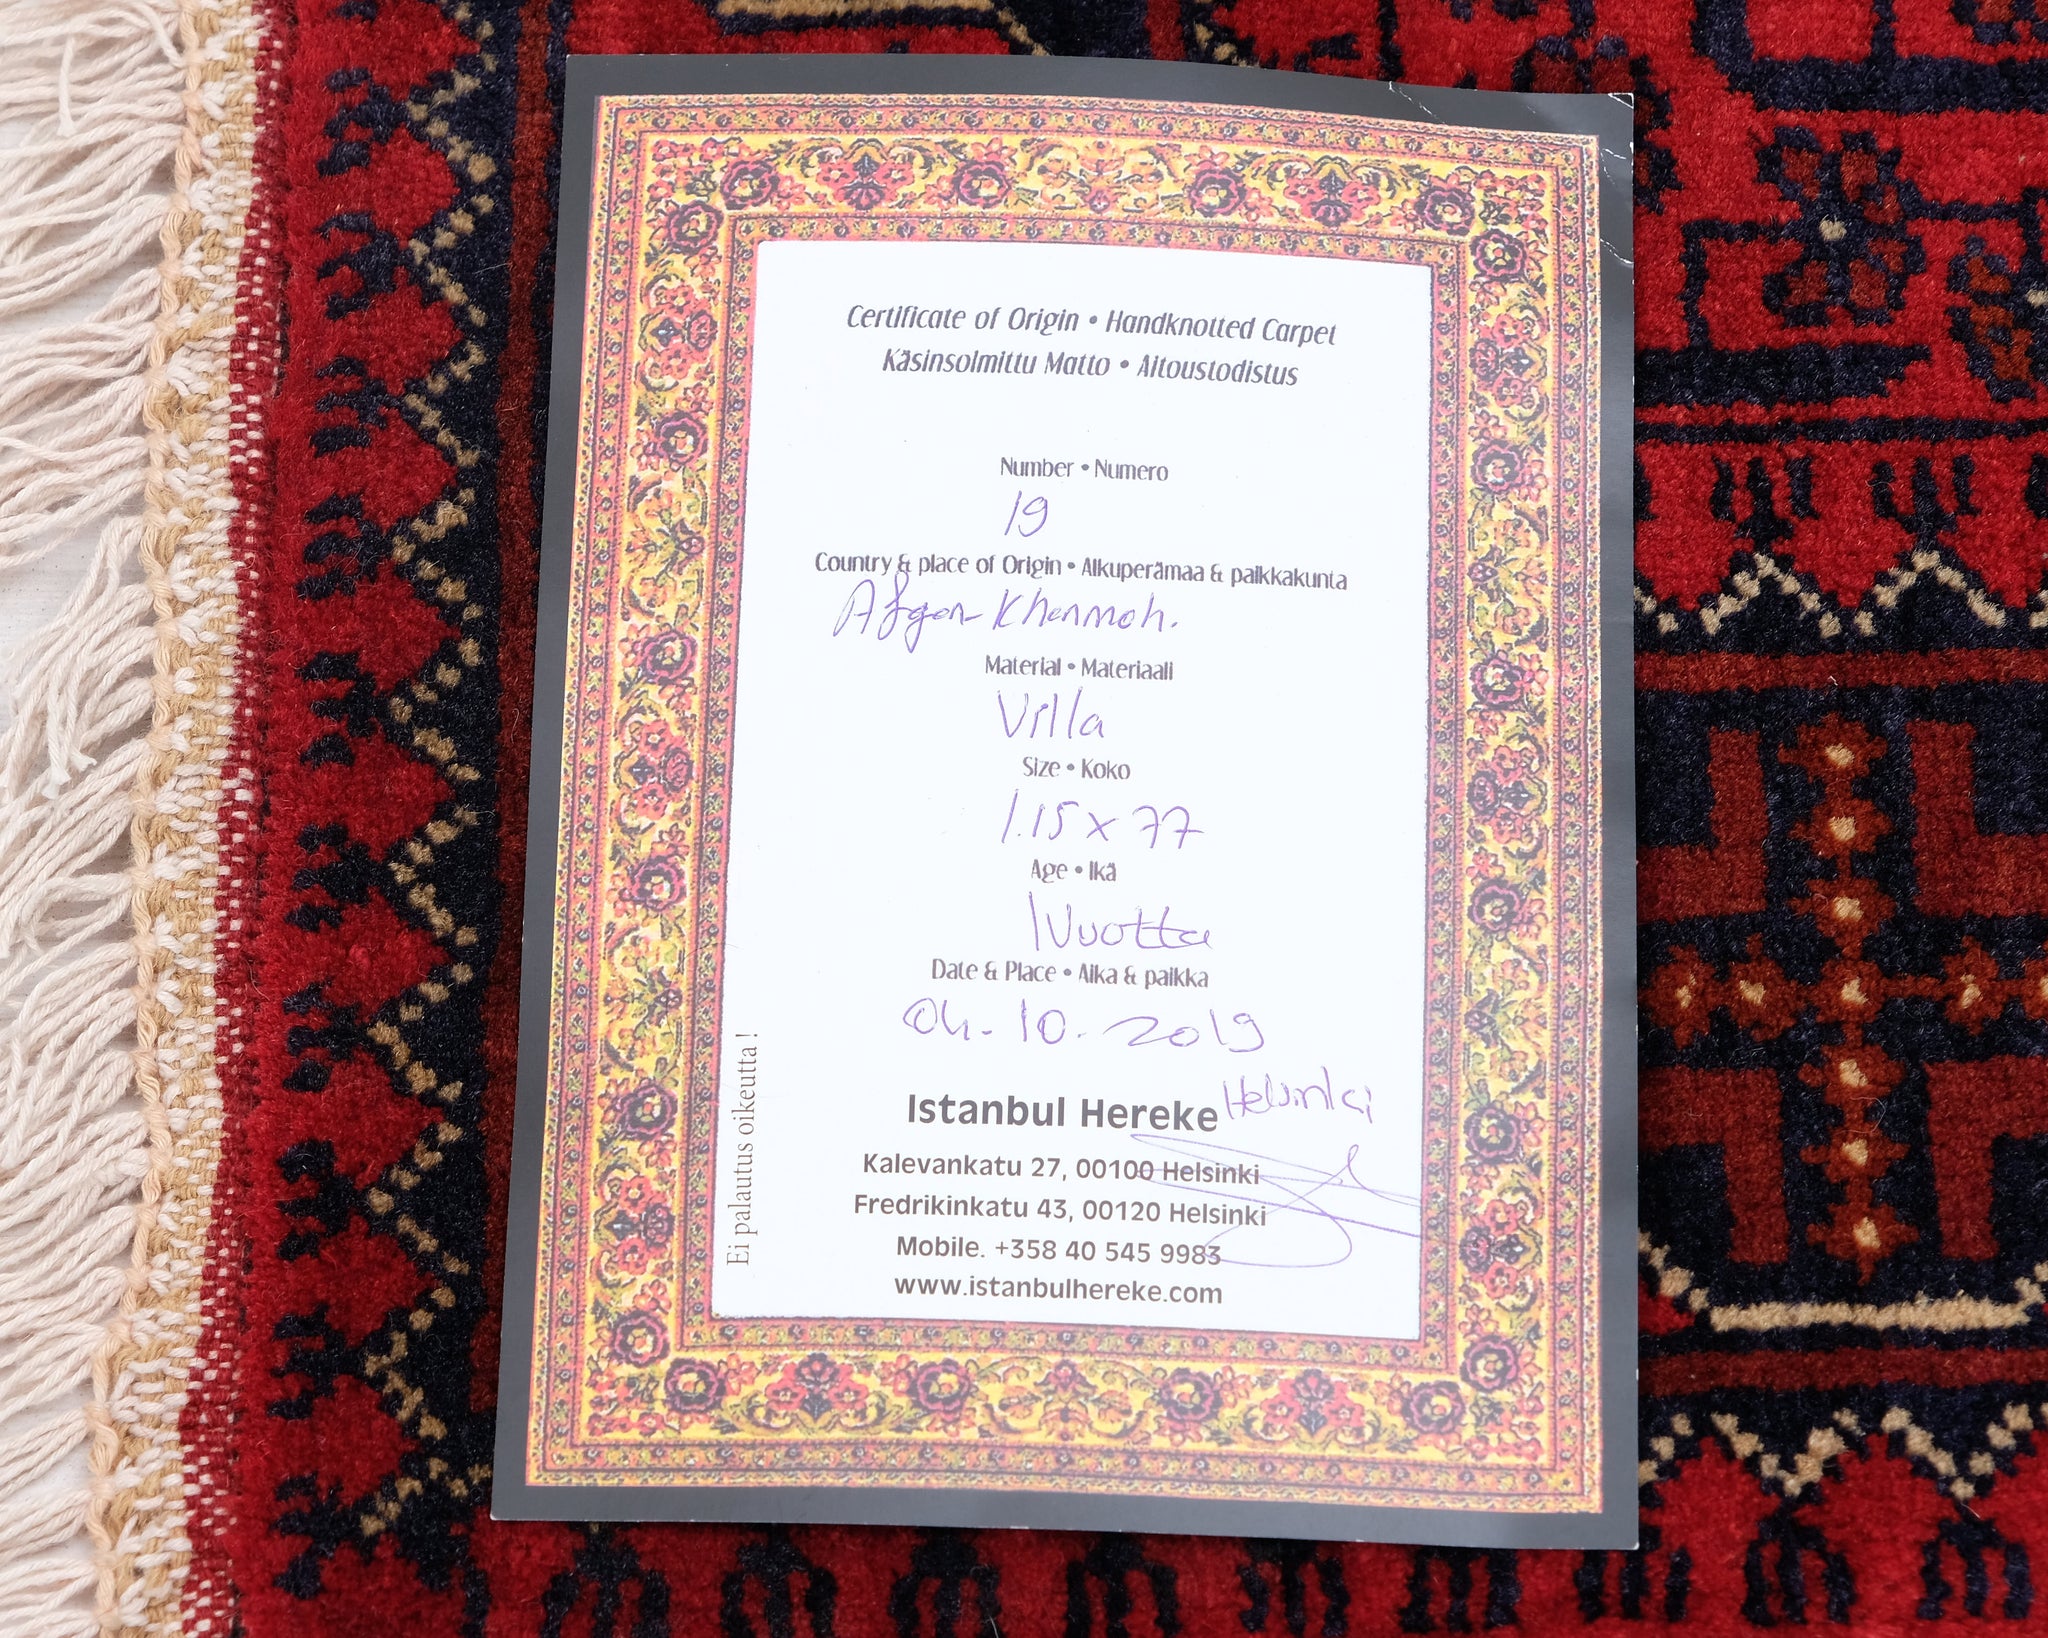 Certificate of Origin • Handknotted Carpet
Käsinsolmittu Matto • Aitoustodistus
Number • Numero
19
Country & place of Origin • Alkuperämaa & paikkakunta
Afgan-Khanmoh.
Material • Materiaali
Villa
Size • Koko
1.15 x 77
Age • Ikä
1Vuotta
Date & Place • Aika & paikka
04.10.2019
Helsinki
Istanbul Hereke
Kalevankatu 27, 00100 Helsinki
Fredrikinkatu 43, 00120 Helsinki
Mobile. +358 40 545 9983
www.istanbulhereke.com
Ei palautus oikeutta!